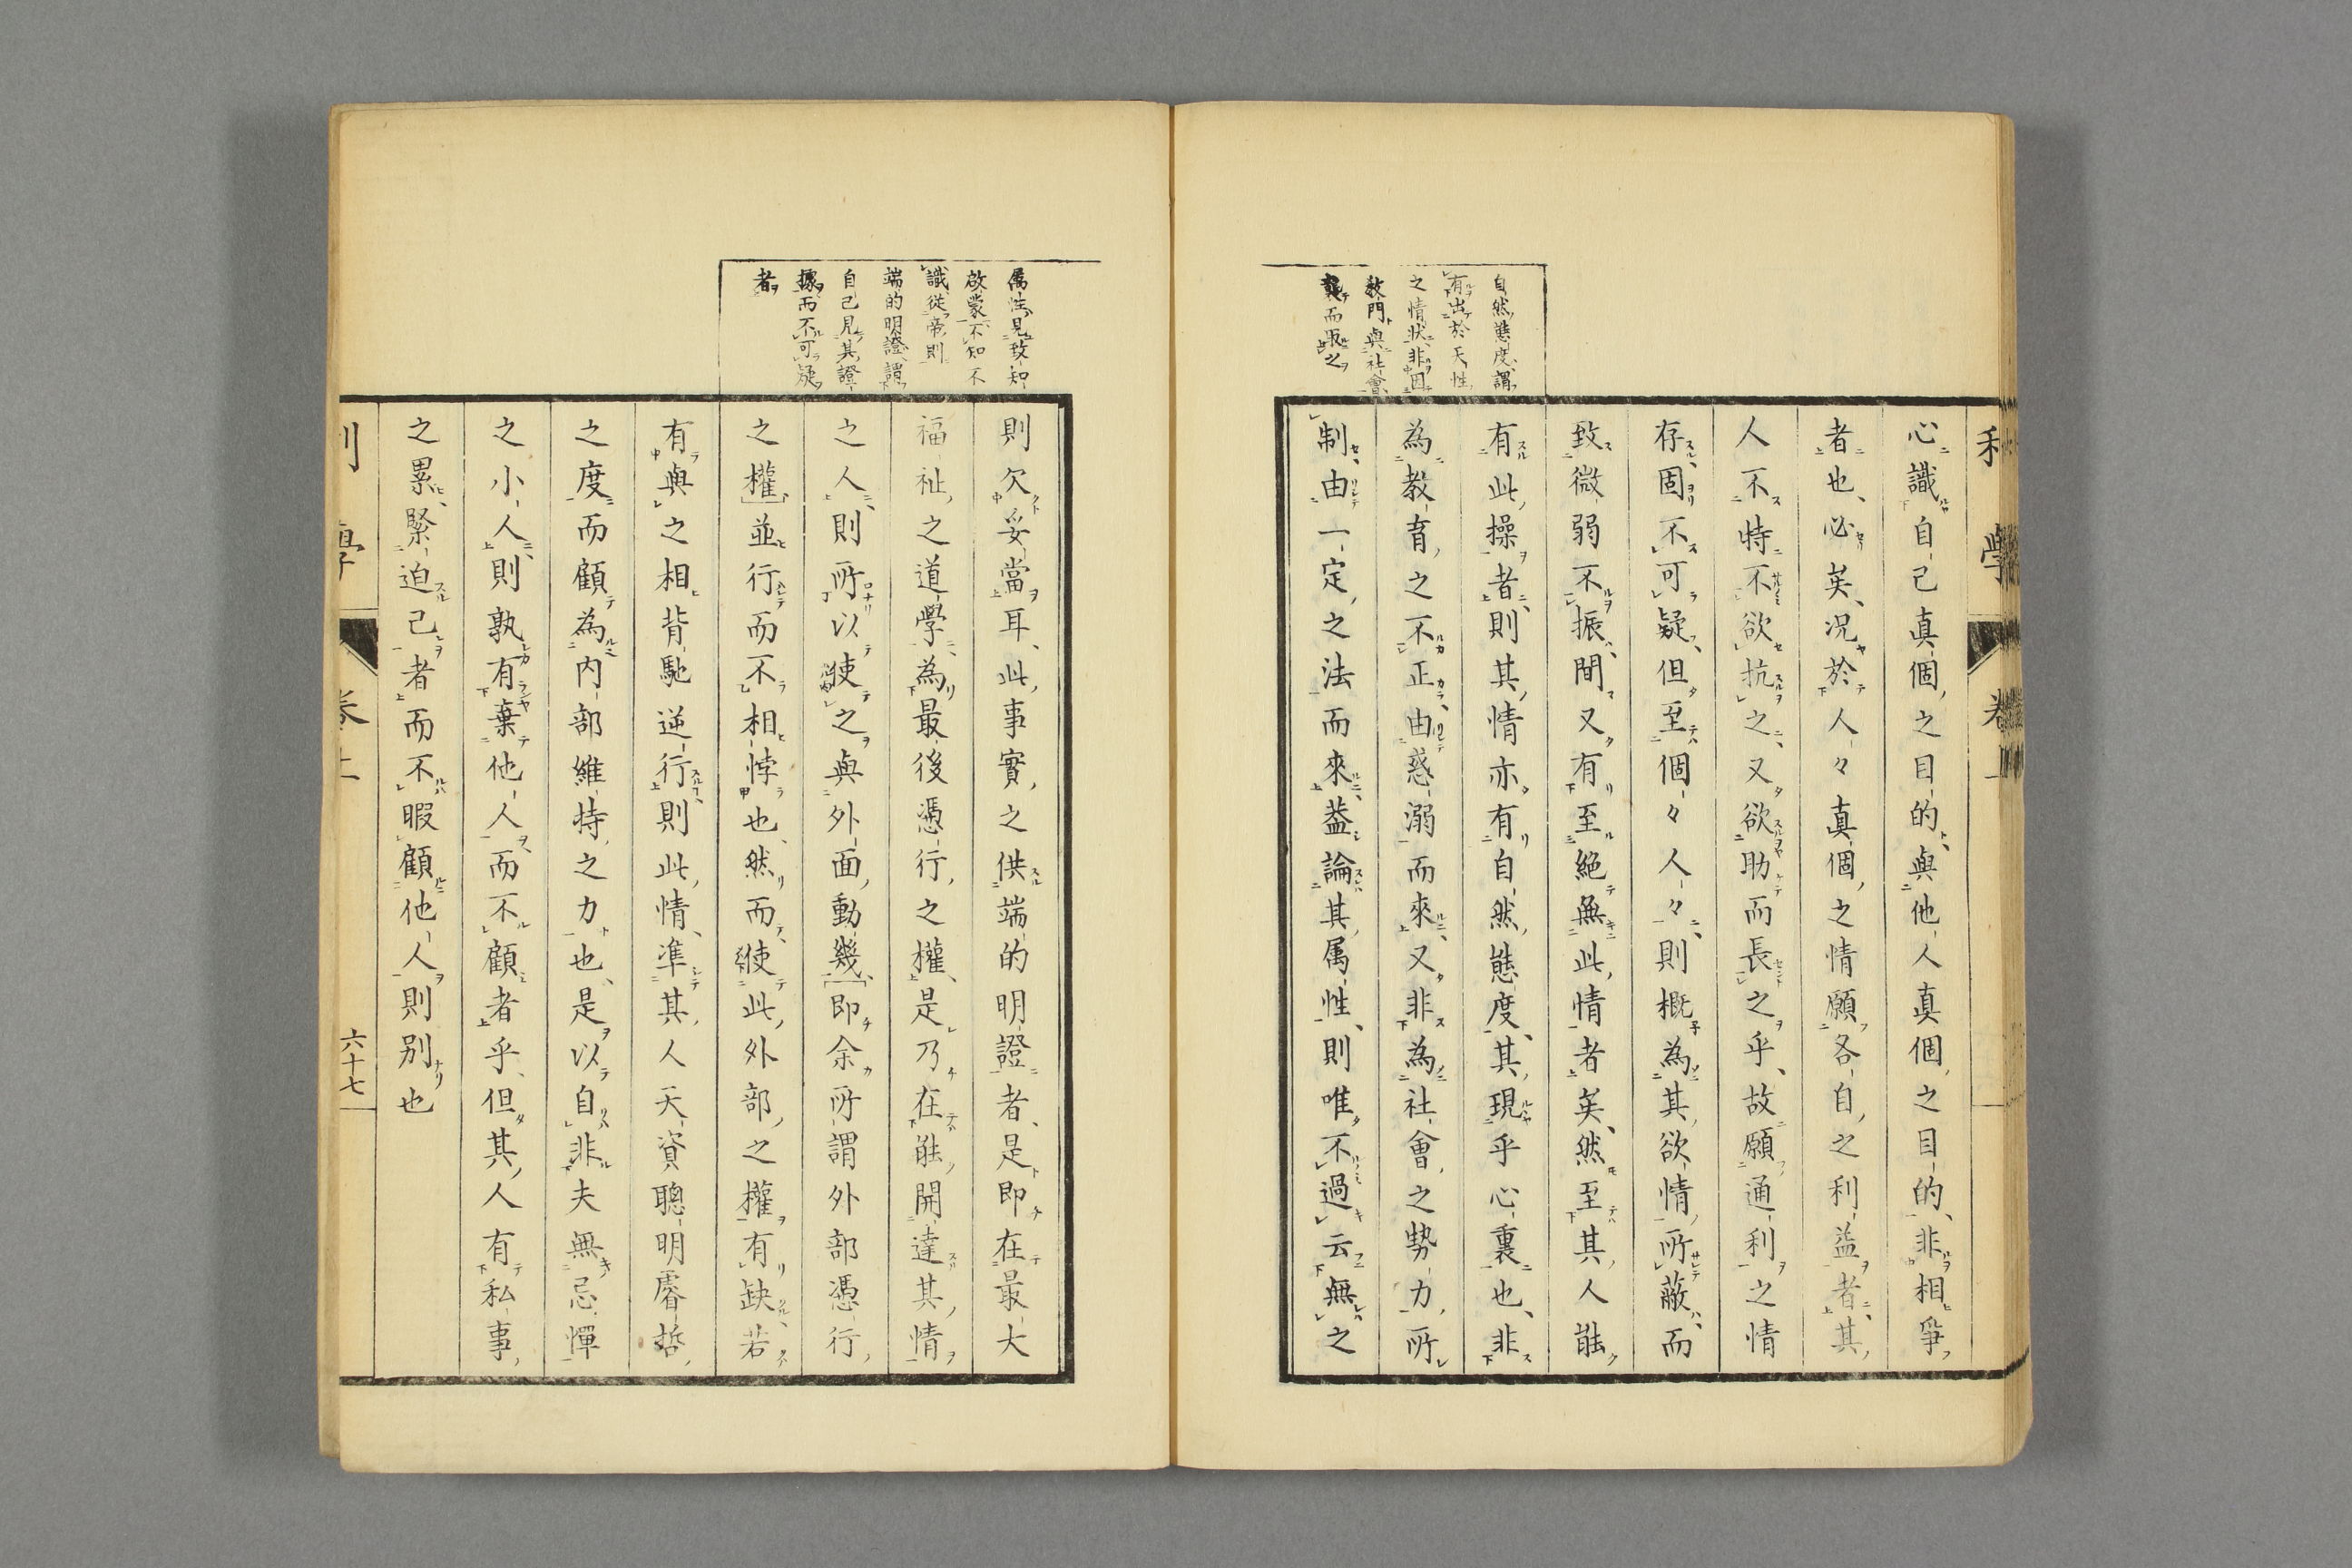 利學 卷上
自然態度、謂
有出於天性
之情狀、非因
敎門與社會
襲而取之
心識自己真個之目的、與他人真個之目的、非相爭
者也、必矣、況於人々真個之情願各自之利益者、其
人不特不欲抗之、又欲助而長之乎、故願通利之情
存固不可疑、但至個々人々、則概為其欲情所蔽、而
致微弱不振、間又有至絕無此情者矣、然至其人能
有此操者、則其情亦有自然態度、其現乎心裏也、非
為敎育之不正、由惑溺而來、又非為社會之勢力所
制、由一定之法而來、蓋論其属性、則唯不過云無之
属性、見致知
啟蒙、不知不
識、從帝則
端的明證、謂
自己見其證
據而不可疑
者
則欠妥當耳、此事實之供端的明證者、是即在最大
福祉之道學、為最後憑行之權、是乃在能開達其情
之人、則所以使之與外面動幾、即余所謂外部憑行
之權、並行而不相悖也、然而使此外部之權有缺、若
有與之相背馳逆行、則此情、準其人天資聰明睿哲
之度、而顧為內部維持之力也、是以自非夫無忌憚
之小人、則孰有棄他人而不顧者乎、但其人有私事
之累、緊迫己者、而不暇顧他人、則別也
利學 卷上 六十七